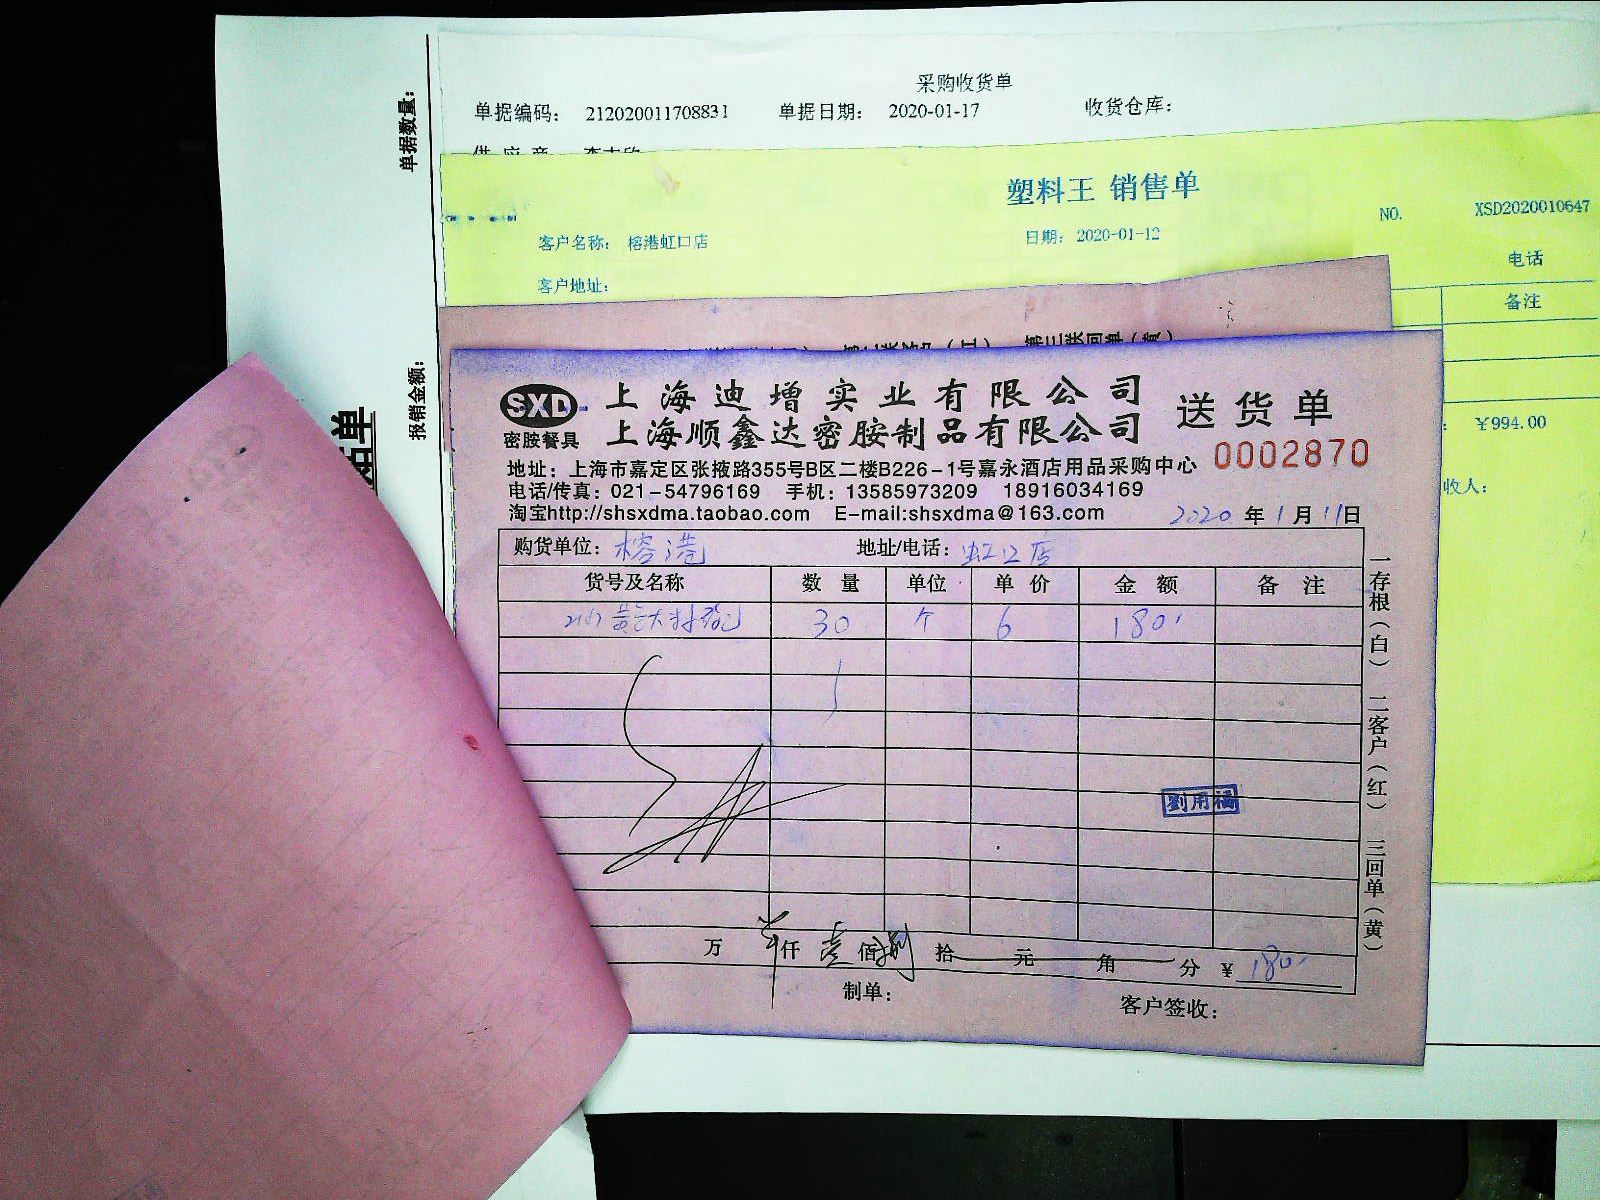 采购收货单
单据编码: 212020011708831 单据日期: 2020-01-17 收货仓库:
单据数量:
塑料王 销售单
NO. XSD2020010647
客户名称: 榕港虹口店 日期: 2020-01-12
电话
客户地址:
备注
报销金额:
¥994.00
收人:
SXD
密胺餐具
上海迪增实业有限公司
上海顺鑫达密胺制品有限公司
送货单
0002870
地址:上海市嘉定区张掖路355号B区二楼B226-1号嘉永酒店用品采购中心
电话/传真:021-54796169 手机:13585973209 18916034169
淘宝http://shsxdma.taobao.com E-mail:shsxdma@163.com
2020 年 1 月 11 日
购货单位: 榕港 地址/电话: 虹口店
货号及名称 数量 单位 单价 金额 备注
30 个 6 180.
劉用福
万 仟 壹 佰 捌 拾 元 角 分 ¥ 180.
制单: 客户签收:
一存根(白) 二客户(红) 三回单(黄)